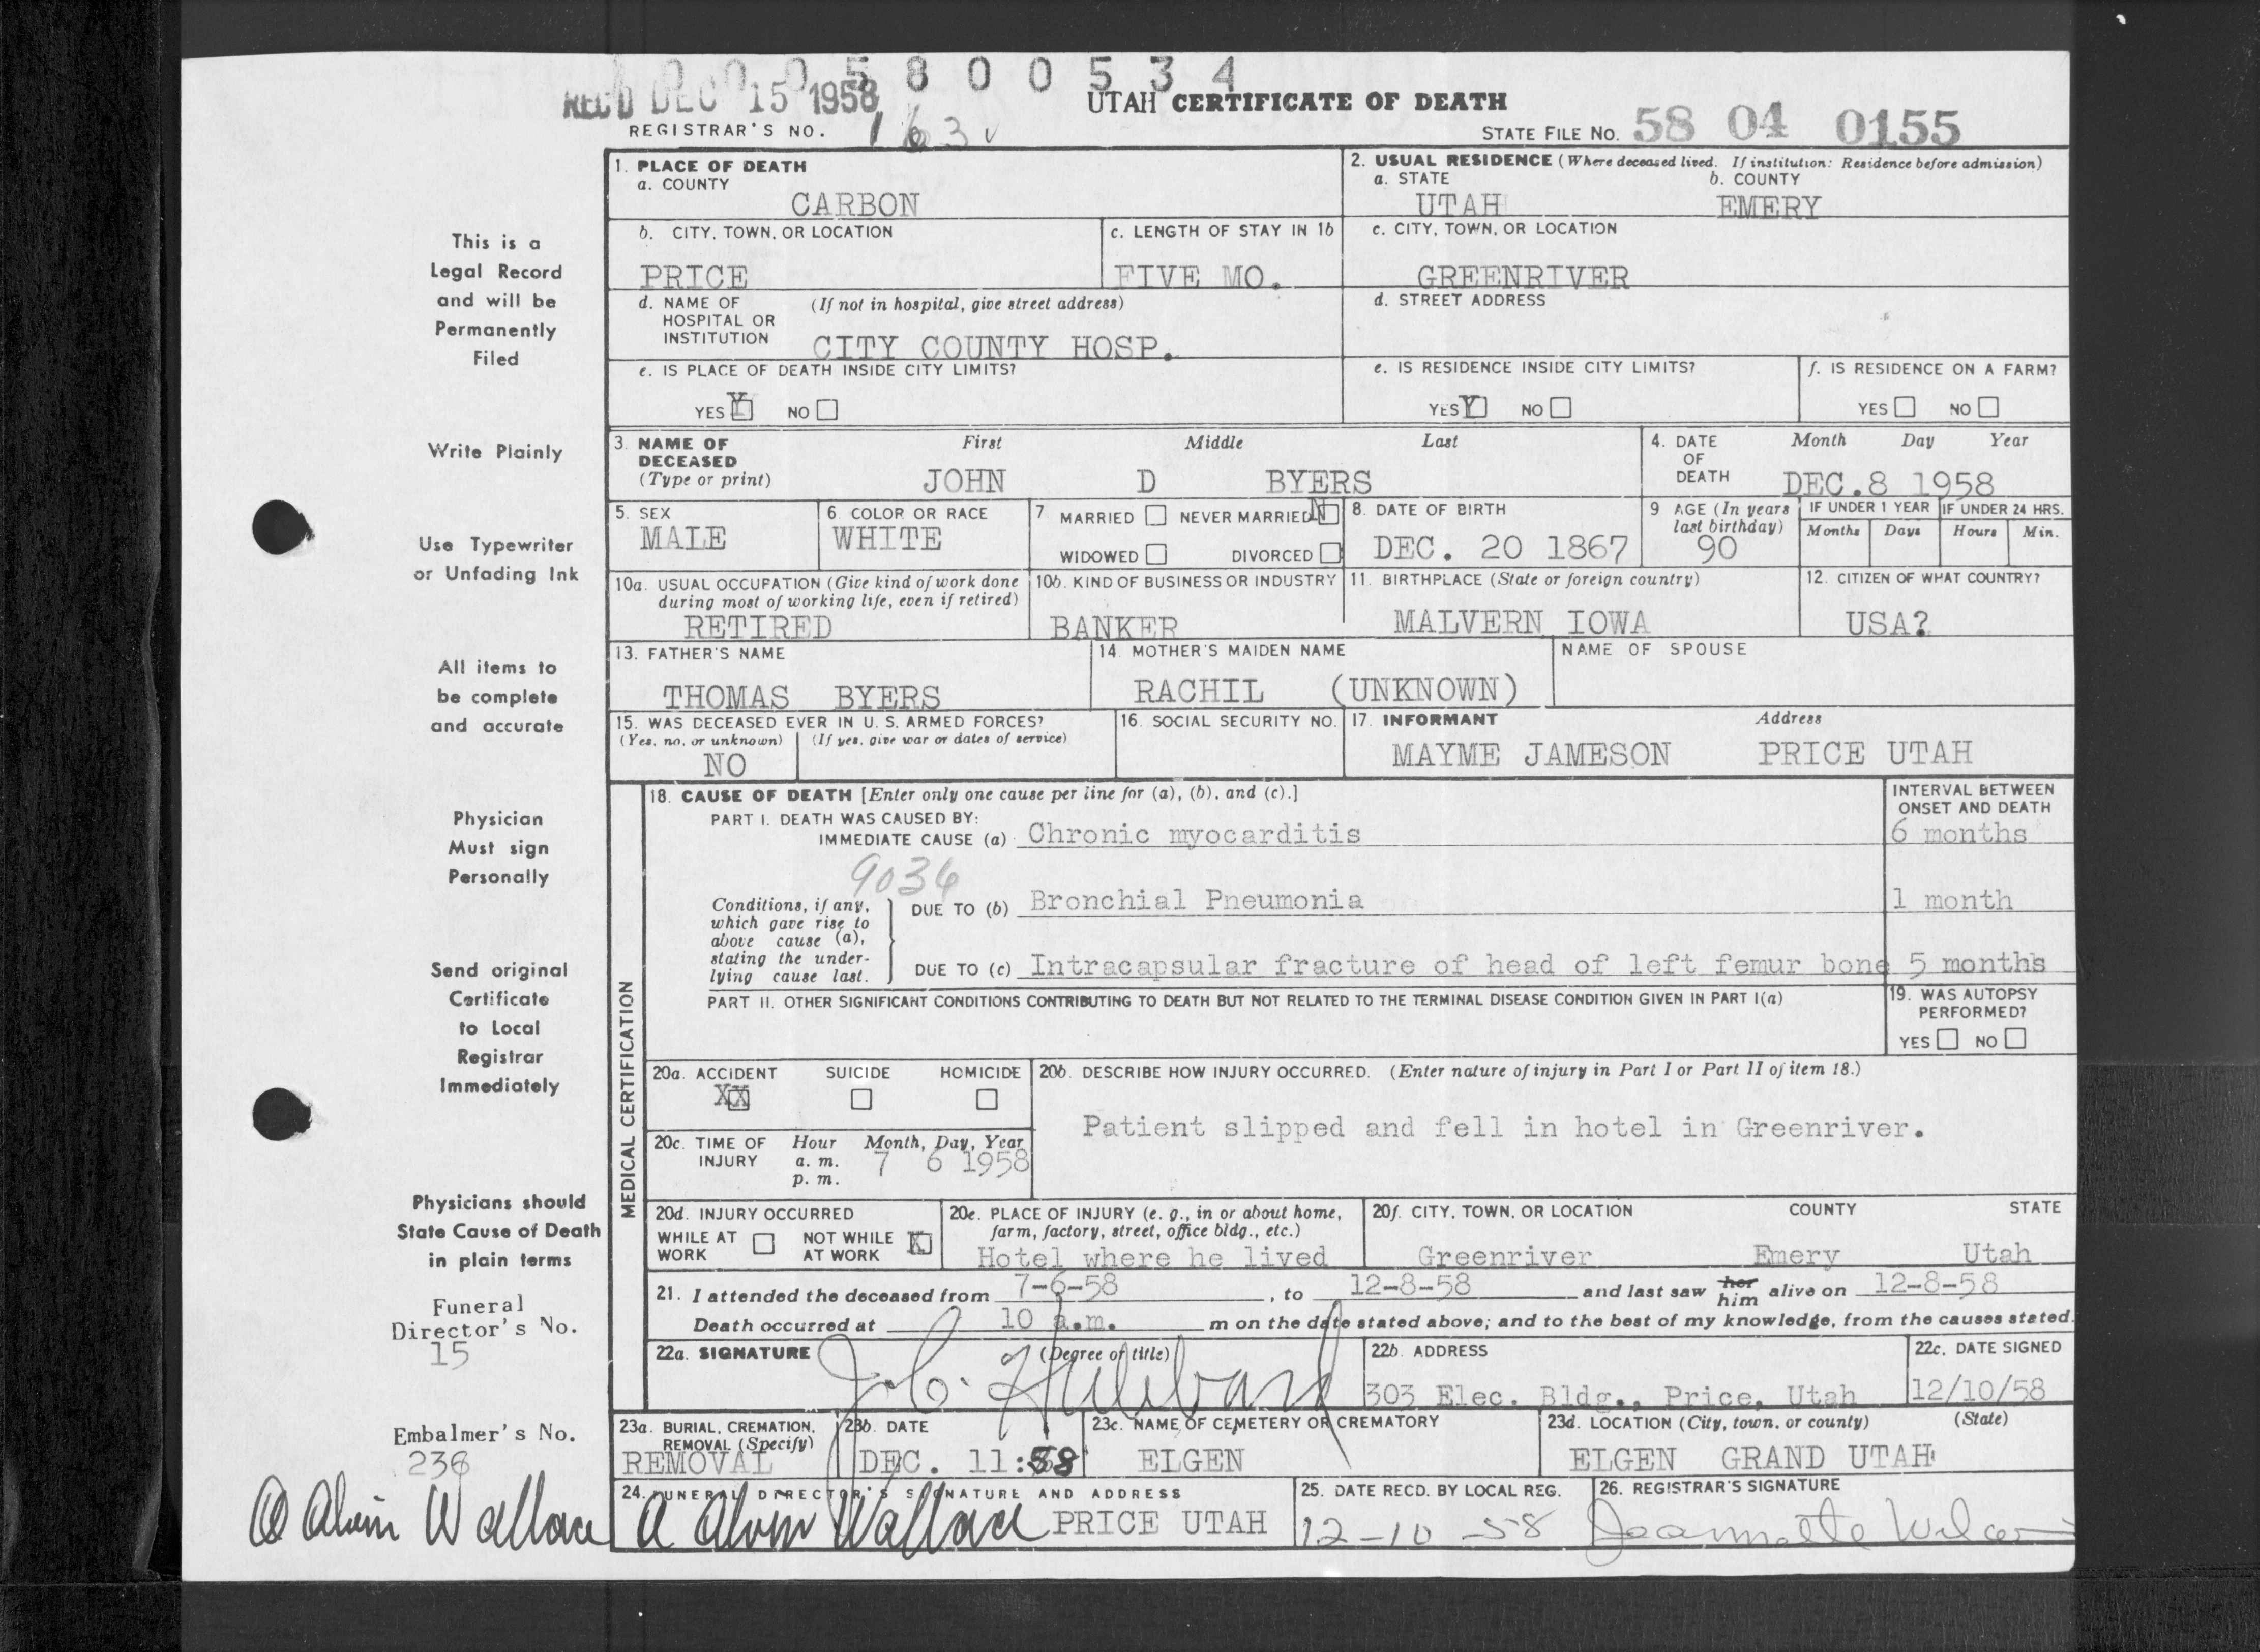 0005800534
REC'D DEC 15 1958
UTAH CERTIFICATE OF DEATH
REGISTRAR'S NO. 163
STATE FILE NO. 58 04 0155
This is a
Legal Record
and will be
Permanently
Filed
Write Plainly
Use Typewriter
or Unfading Ink
All items to
be complete
and accurate
Physician
Must sign
Personally
Send original
Certificate
to Local
Registrar
Immediately
Physicians should
State Cause of Death
in plain terms
Funeral
Director's No.
15
Embalmer's No.
236
A Alvin Wallace
1. PLACE OF DEATH
a. COUNTY
CARBON
2. USUAL RESIDENCE (Where deceased lived. If institution: Residence before admission)
a. STATE b. COUNTY
UTAH EMERY
b. CITY, TOWN, OR LOCATION
PRICE
c. LENGTH OF STAY IN 1b
FIVE MO.
c. CITY, TOWN, OR LOCATION
GREENRIVER
d. NAME OF (If not in hospital, give street address)
HOSPITAL OR
INSTITUTION CITY COUNTY HOSP.
d. STREET ADDRESS
e. IS PLACE OF DEATH INSIDE CITY LIMITS?
YES Y NO
e. IS RESIDENCE INSIDE CITY LIMITS?
YES Y NO
f. IS RESIDENCE ON A FARM?
YES NO
3. NAME OF First Middle Last
DECEASED
(Type or print) JOHN D BYERS
4. DATE Month Day Year
OF
DEATH DEC.8 1958
5. SEX
MALE
6. COLOR OR RACE
WHITE
7. MARRIED NEVER MARRIED N
WIDOWED DIVORCED
8. DATE OF BIRTH
DEC. 20 1867
9 AGE (In years
last birthday)
90
IF UNDER 1 YEAR IF UNDER 24 HRS.
Months Days Hours Min.
10a. USUAL OCCUPATION (Give kind of work done
during most of working life, even if retired)
RETIRED
10b. KIND OF BUSINESS OR INDUSTRY
BANKER
11. BIRTHPLACE (State or foreign country)
MALVERN IOWA
12. CITIZEN OF WHAT COUNTRY?
USA?
13. FATHER'S NAME
THOMAS BYERS
14. MOTHER'S MAIDEN NAME
RACHIL (UNKNOWN)
NAME OF SPOUSE
15. WAS DECEASED EVER IN U. S. ARMED FORCES?
(Yes, no, or unknown) (If yes, give war or dates of service)
NO
16. SOCIAL SECURITY NO.
17. INFORMANT Address
MAYME JAMESON PRICE UTAH
MEDICAL CERTIFICATION
18. CAUSE OF DEATH [Enter only one cause per line for (a), (b), and (c).]
INTERVAL BETWEEN
ONSET AND DEATH
PART I. DEATH WAS CAUSED BY:
IMMEDIATE CAUSE (a) Chronic myocarditis 6 months
9036
Conditions, if any,
which gave rise to
above cause (a),
stating the under-
lying cause last.
DUE TO (b) Bronchial Pneumonia 1 month
DUE TO (c) Intracapsular fracture of head of left femur bone 5 months
PART II. OTHER SIGNIFICANT CONDITIONS CONTRIBUTING TO DEATH BUT NOT RELATED TO THE TERMINAL DISEASE CONDITION GIVEN IN PART I(a)
19. WAS AUTOPSY
PERFORMED?
YES NO
20a. ACCIDENT SUICIDE HOMICIDE
XX
20b. DESCRIBE HOW INJURY OCCURRED. (Enter nature of injury in Part I or Part II of item 18.)
Patient slipped and fell in hotel in Greenriver.
20c. TIME OF Hour Month, Day, Year
INJURY a. m. 7 6 1958
p. m.
20d. INJURY OCCURRED
WHILE AT NOT WHILE X
WORK AT WORK
20e. PLACE OF INJURY (e. g., in or about home,
farm, factory, street, office bldg., etc.)
Hotel where he lived
20f. CITY, TOWN, OR LOCATION COUNTY STATE
Greenriver Emery Utah
21. I attended the deceased from 7-6-58, to 12-8-58 and last saw her him alive on 12-8-58
Death occurred at 10 a.m. m on the date stated above; and to the best of my knowledge, from the causes stated.
22a. SIGNATURE (Degree or title)
J. C. Hubbard
22b. ADDRESS
303 Elec. Bldg., Price, Utah
22c. DATE SIGNED
12/10/58
23a. BURIAL, CREMATION,
REMOVAL (Specify)
REMOVAL
23b. DATE
DEC. 11:58
23c. NAME OF CEMETERY OR CREMATORY
ELGEN
23d. LOCATION (City, town, or county) (State)
ELGEN GRAND UTAH
24. FUNERAL DIRECTOR'S SIGNATURE AND ADDRESS
A Alvin Wallace PRICE UTAH
25. DATE RECD. BY LOCAL REG.
12-10-58
26. REGISTRAR'S SIGNATURE
Jeannette Wilcox